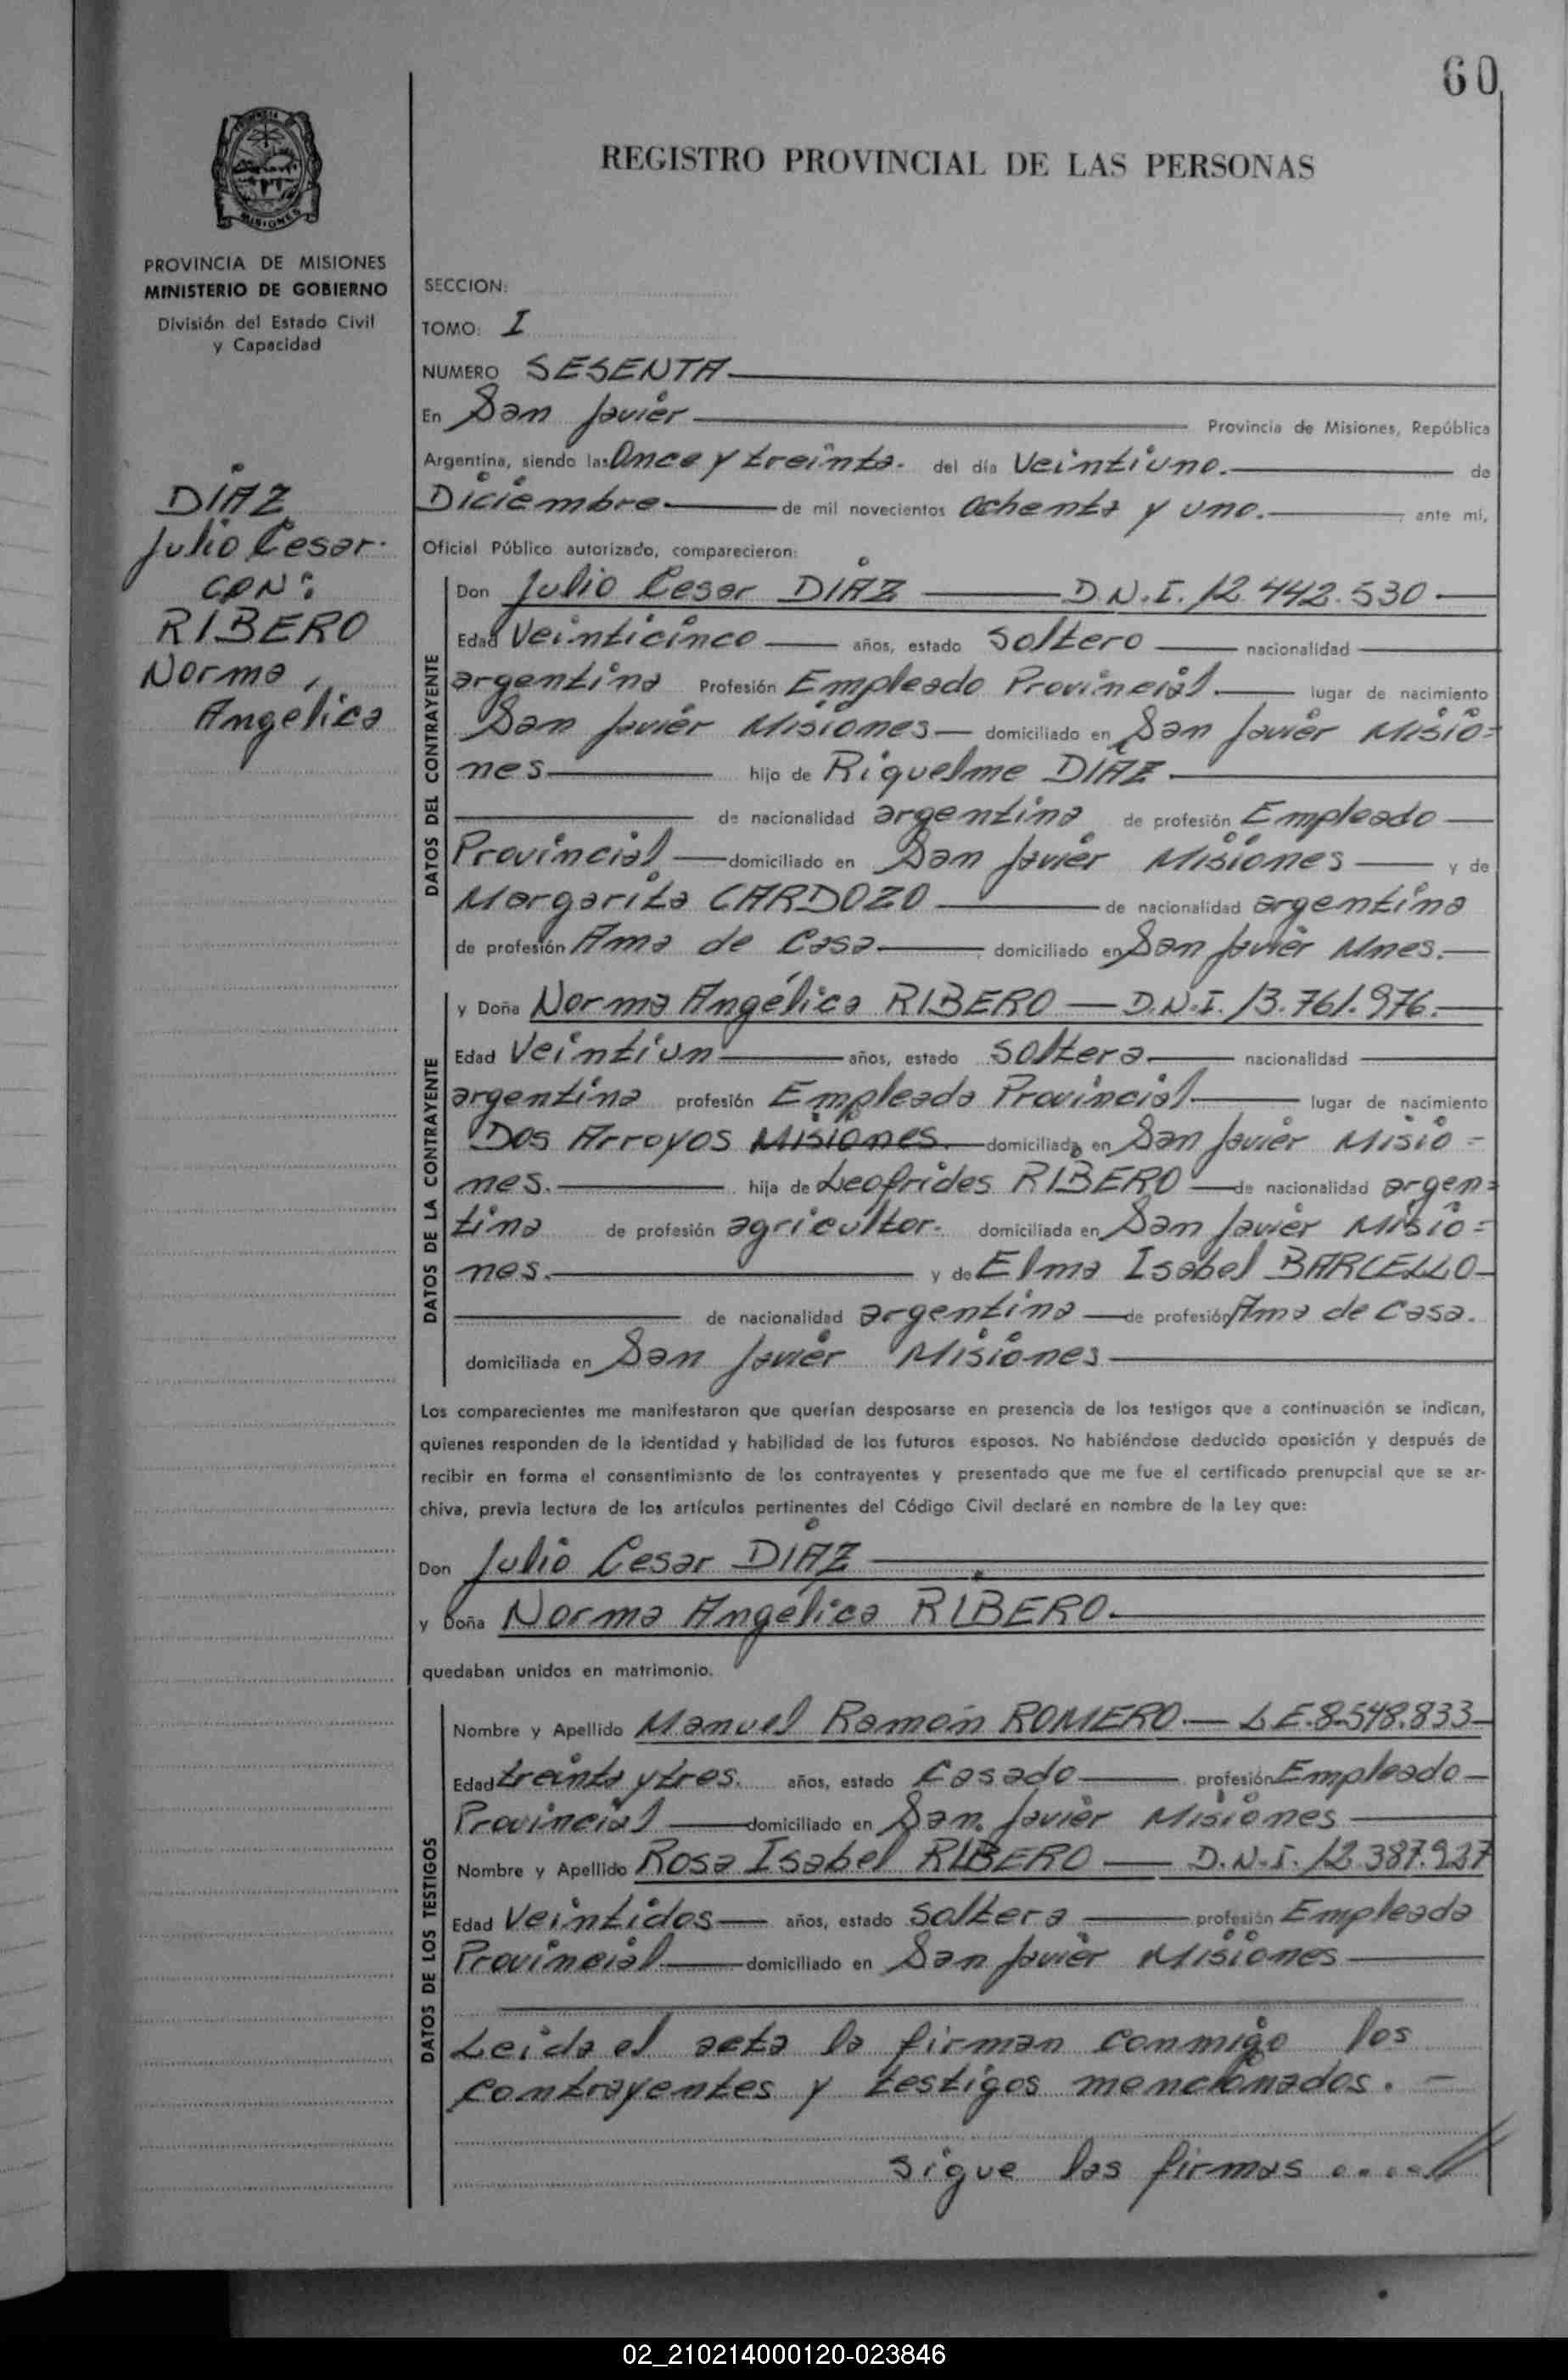 60
REGISTRO PROVINCIAL DE LAS PERSONAS
MISIONES
PROVINCIA DE MISIONES
MINISTERIO DE GOBIERNO
División del Estado Civil
y Capacidad
DIAZ
Julio Cesar.
CON:
RIBERO
Norma
Angelica
SECCION:
TOMO: I
NUMERO SESENTA
En San Javier Provincia de Misiones, República
Argentina, siendo las Once y treinta. del día Veintiuno. de
Diciembre de mil novecientos Ochenta y uno. ante mi,
Oficial Público autorizado, comparecieron:
DATOS DEL CONTRAYENTE
Don Julio Cesar DIAZ D.N.I. 12.442.530
Edad Veinticinco años, estado Soltero nacionalidad
argentina Profesión Empleado Provincial. lugar de nacimiento
San Javier Misiones domiciliado en San Javier Misio=
nes hijo de Riquelme DIAZ
de nacionalidad argentina de profesión Empleado
Provincial domiciliado en San Javier Misiones y de
Margarita CARDOZO de nacionalidad argentina
de profesión Ama de Casa domiciliado en San Javier Mnes.
DATOS DE LA CONTRAYENTE
y Doña Norma Angélica RIBERO D.N.I. 13.761.976.
Edad Veintiun años, estado Soltera nacionalidad
argentina profesión Empleada Provincial lugar de nacimiento
Dos Arroyos Misiones. domiciliada en San Javier Misio=
nes. hija de Leofrides RIBERO de nacionalidad argen=
tina de profesión agricultor. domiciliada en San Javier Misio=
nes. y de Elma Isabel BARCELLO
de nacionalidad argentina de profesión Ama de Casa.
domiciliada en San Javier Misiones
Los comparecientes me manifestaron que querían desposarse en presencia de los testigos que a continuación se indican,
quienes responden de la identidad y habilidad de los futuros esposos. No habiéndose deducido oposición y después de
recibir en forma el consentimianto de los contrayentes y presentado que me fue el certificado prenupcial que se ar-
chiva, previa lectura de los artículos pertinentes del Código Civil declaré en nombre de la Ley que:
Don Julio Cesar DIAZ
y Doña Norma Angélica RIBERO.
quedaban unidos en matrimonio.
DATOS DE LOS TESTIGOS
Nombre y Apellido Manuel Ramón ROMERO. L.E. 8.548.833
Edad treinta y tres. años, estado Casado profesión Empleado
Provincial domiciliado en San Javier Misiones
Nombre y Apellido Rosa Isabel RIBERO D.N.I. 12.387.927
Edad Veintidos años, estado Soltera profesión Empleada
Provincial domiciliado en San Javier Misiones
Leida el acta la firman conmigo los
contrayentes y testigos mencionados. -
Sigue las firmas ....//
02_210214000120-023846